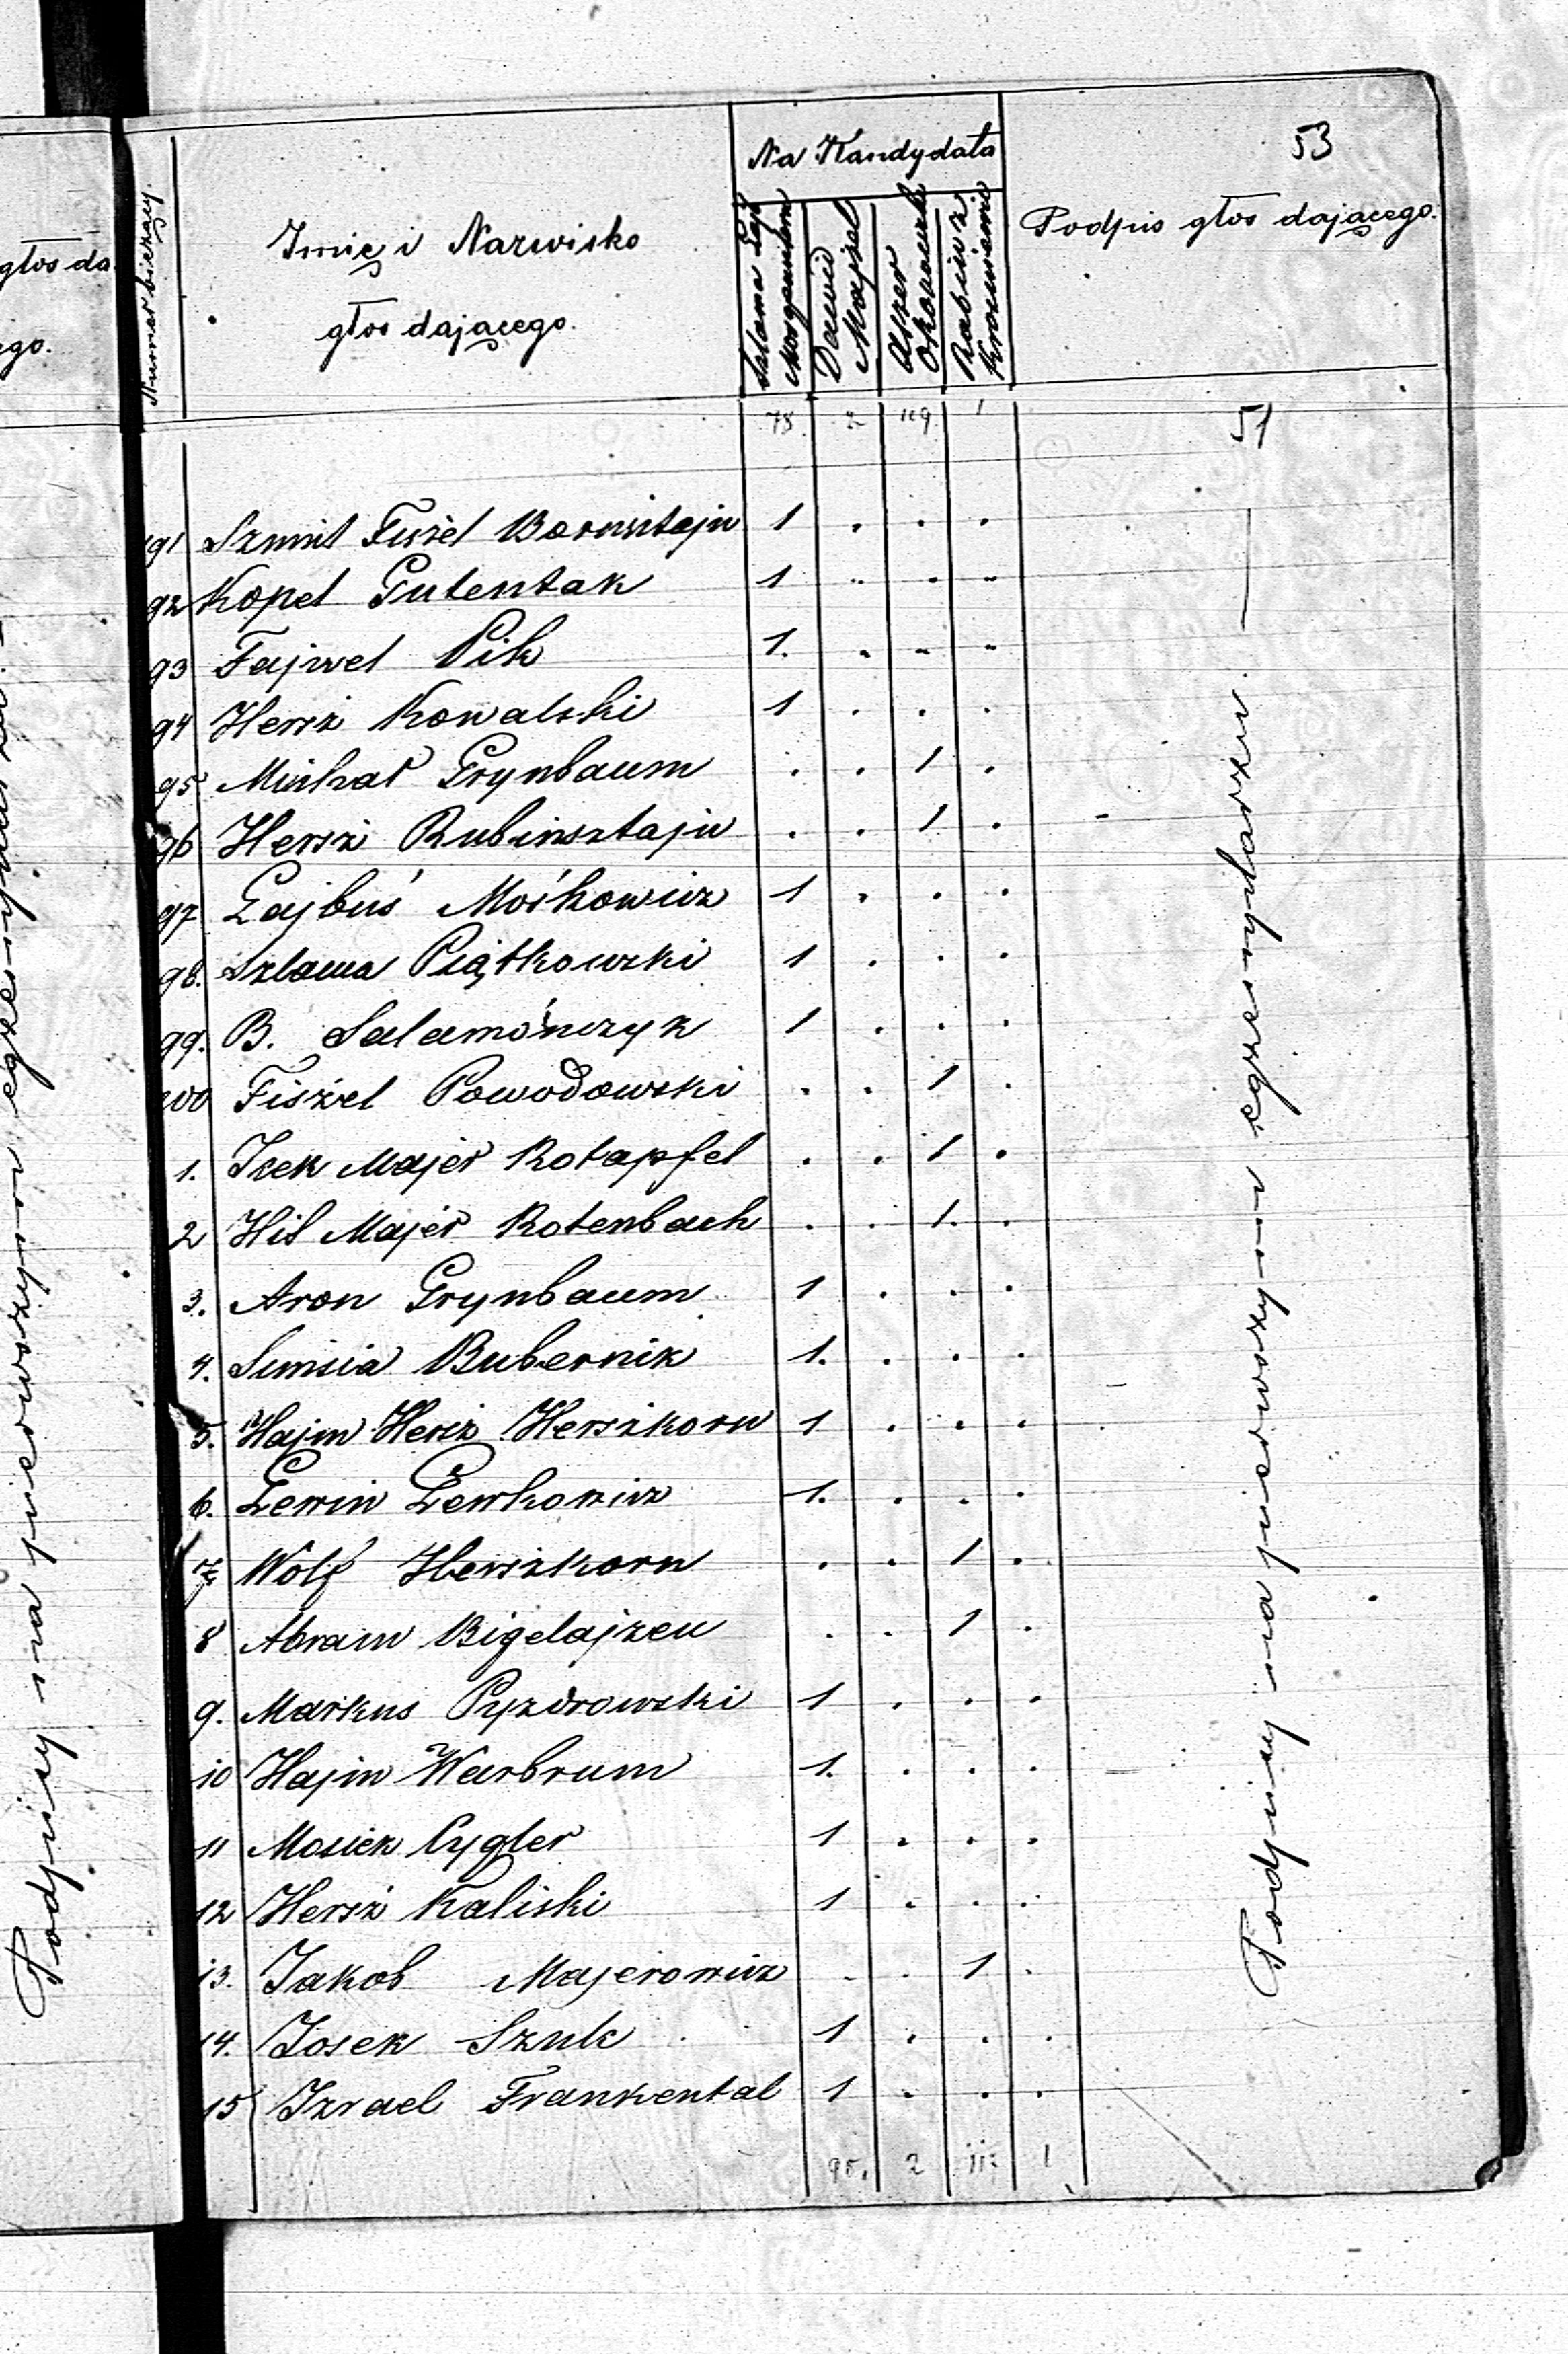 głos da
ego.
Podpisy na pierwszym egzemplarzu. —
53
Numer bieżący.
Imię i Nazwisko
głos dającego.
Na Kandydata
Dawid
Majzel
Aszer
Rabin z
Podpis głos dającego.
78 2 109 1
51
191 Szmul Fiszel Bornsztajn 1 . . .
92 Kopel Gutentak 1 . . .
93 Fajwel Pik 1. . . .
94 Hersz Kowalski 1 . . .
95 Michał Grynbaum . . 1 .
96 Hersz Rubinsztajn . . 1 .
97 Lajbuś Mośkowicz 1 . . .
98. Szlama Piątkowski 1 . . .
99. B. Salamończyk 1 . . .
200 Fiszel Powodowski . . 1 .
1. Icek Majer Rotapfel . . 1 .
2 Hil Majer Rotenbach . . 1. .
3. Aron Grynbaum 1 . . .
4. Simsia Bubernik 1. . . .
5. Hajm Hersz Herszkorn 1 . . .
6. Lewin Lewkowicz 1. . . .
7. Wolf Herszkorn . . 1 .
8 Abram Bigelajzen . . 1 .
9. Markus Pyzdrowski 1 . . .
10 Hajm Warbrum 1. . . .
11 Mosiek Cygler 1 . . .
12 Hersz Kaliski 1 . . .
13. Jakob Majerowicz . . 1 .
14. Josek Szulc 1 . . .
15 Izrael Frankental 1 . . .
95. 2 1
Podpisy na pierwszym egzemplarzu. —